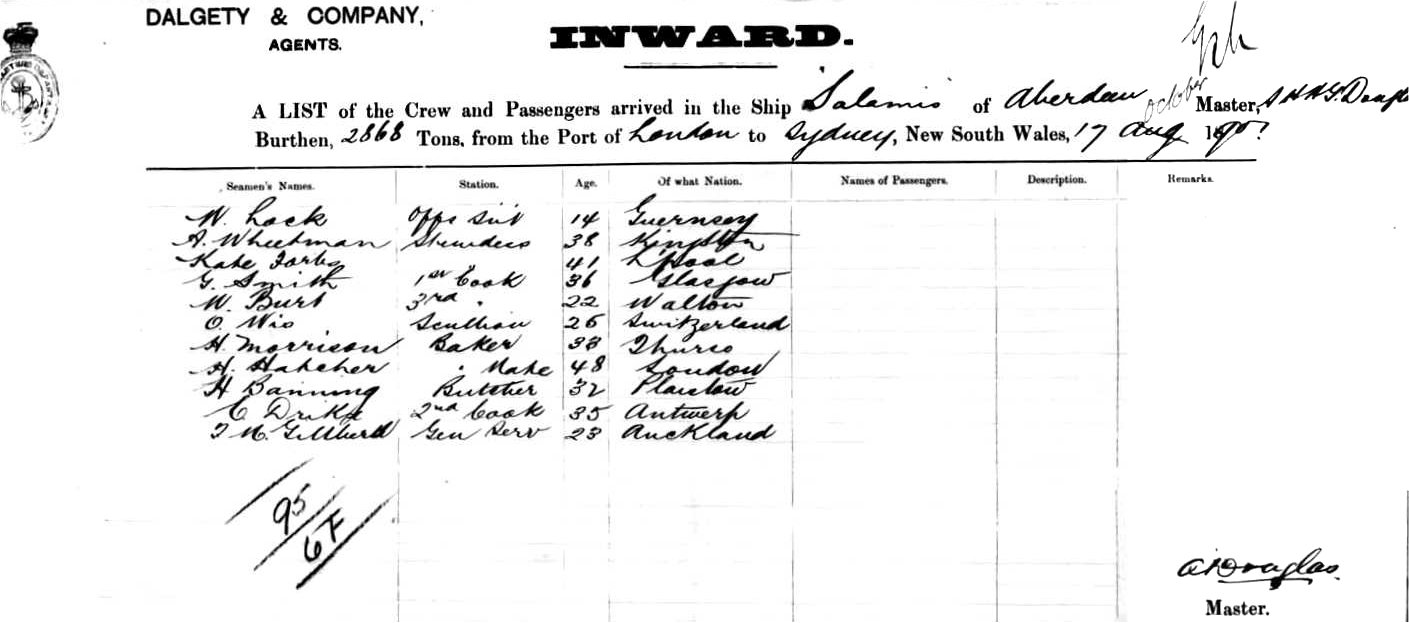 DALGETY & COMPANY,
AGENTS.
INWARD.
A LIST of the Crew and Passengers arrived in the Ship Salamis of Aberdeen Master,
October
Burthen, 2868 Tons, from the Port of London to Sydney, New South Wales, 17 Aug
Seamen's Names. Station. Age. Of what Nation. Names of Passengers. Description. Remarks.
W. Lock 14 Guernsey
A. Wheetman Stewardess 38 Kingston
Kate Forbs 41 L'pool
G. Smith 1st Cook 36 Glasgow
W. Burt 3rd " 22 Walton
O. Wis Scullion 26 Switzerland
H. Morrison Baker 33 Thurso
H. Hatcher " Mate 48 London
H Banning Butcher 32 Plaistow
C 2nd Cook 35 Antwerp
Gen Serv 23 Auckland
95
6F
Douglas
Master.